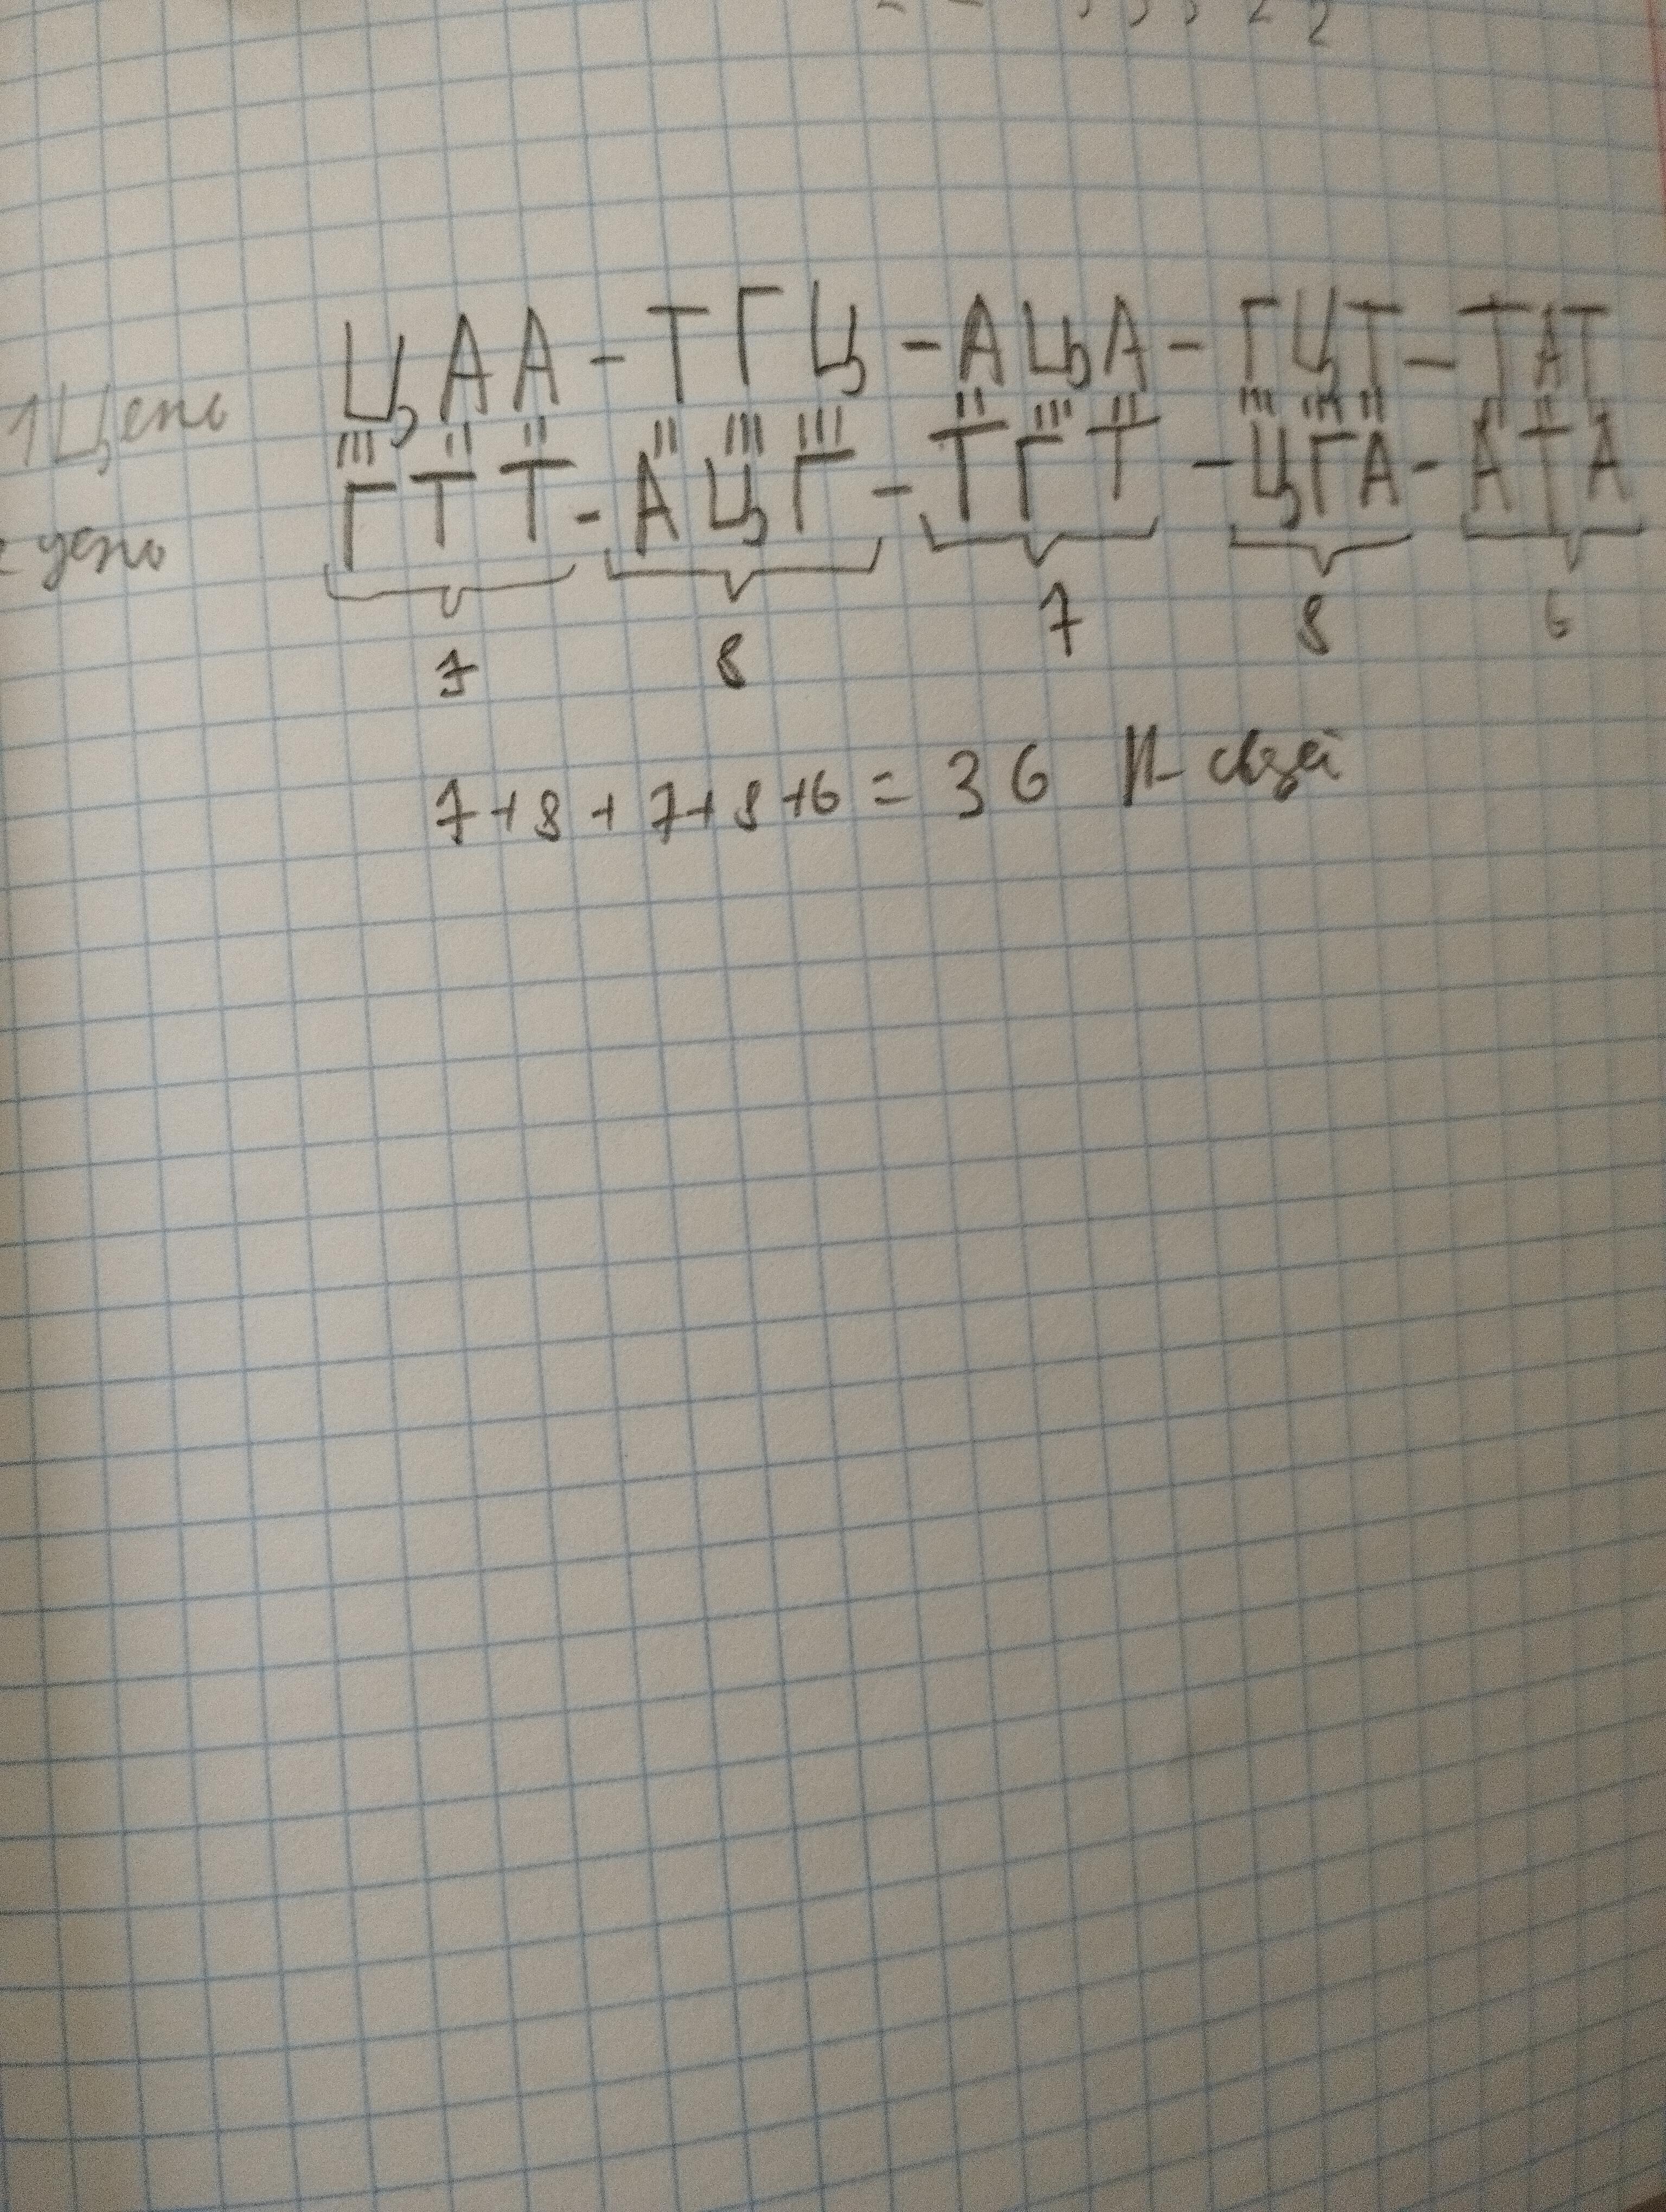 1 Цепь ЦАА - ТГЦ - АЦА - ГЦТ - ТАТ
цепь ГТТ - АЦГ - ТГТ - ЦГА - АТА
7 8 7 8 6
7+8+7+8+6 = 36 Н-связей